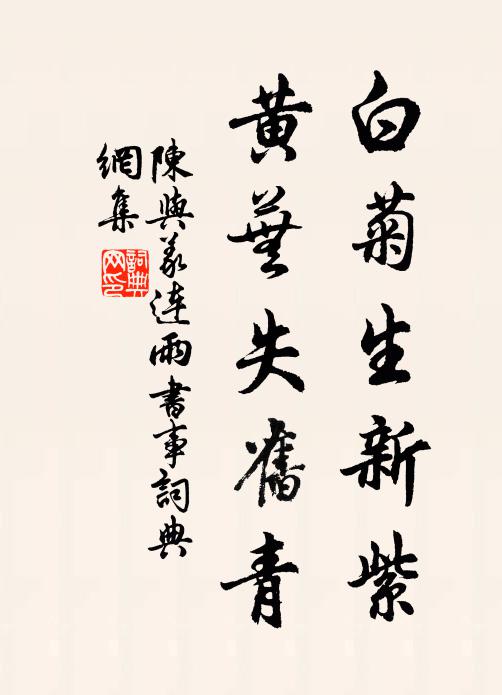 白菊生新紫
黄蕪失舊青
陳與義連雨書事詞典
網集
詞典
网印